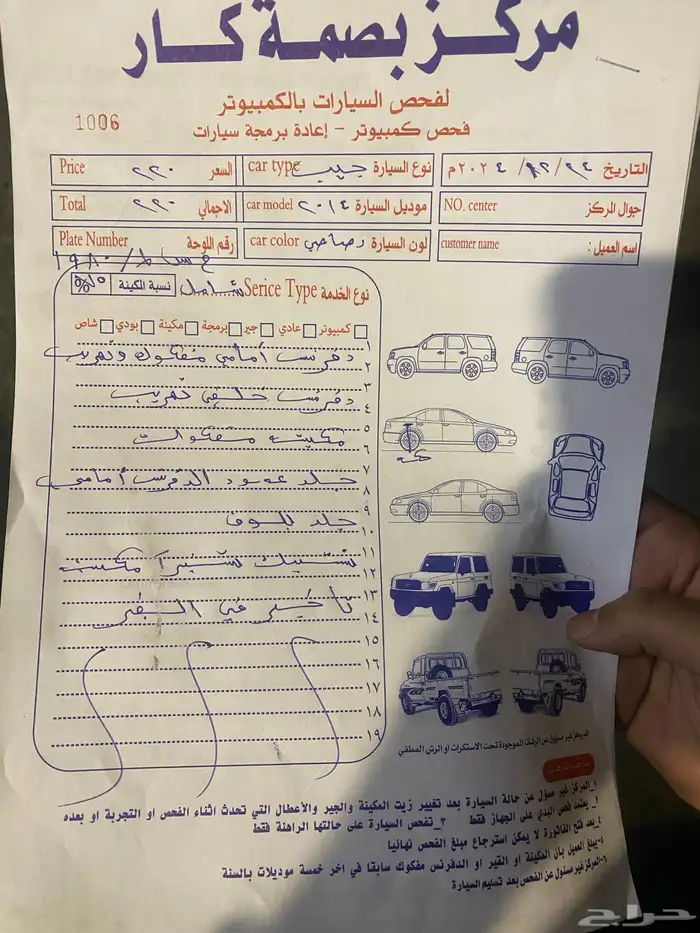 مركز بصمة كار
لفحص السيارات بالكمبيوتر
فحص كمبيوتر - إعادة برمجة سيارات
1006
التاريخ ٢٤ / ١٢ / ٢٠٢٤م
نوع السيارة car type جيب
السعر Price ٢٢٠
جوال المركز NO. center
موديل السيارة car model ٢٠١٤
الاجمالي Total ٢٢٠
اسم العميل : customer name
لون السيارة car color رصاصي
رقم اللوحة Plate Number
نوع الخدمة Serice Type شامل
نسبة المكينة
كمبيوتر عادي جير برمجة مكينة بودي شاص
١
دفرنس أمامي مفكوك وتهريب
٢
٣
دفرنس خلفي تهريب
٤
٥
مكينه مفكوك
٦
٧
جلد عمود الدفرنس أمامي
٨
٩
جلد بلوف
١٠
١١
تشييك مكينه
١٢
١٣
تأخير في القير
١٤
١٥
١٦
١٧
١٨
١٩
المركز غير مسؤول عن الرشات الموجودة تحت الاستكرات او الرش المطفي
١_المركز غير مسؤل عن حالة السيارة بعد تغيير زيت المكينة والجير والأعطال التي تحدث اثناء الفحص او التجربة او بعده
٢_يعتمد فحص البدي على الجهاز فقط ٣_تفحص السيارة على حالتها الراهنة فقط
٤_بعد فتح الفاتورة لا يمكن استرجاع مبلغ الفحص نهائيا
٥-يبلغ العميل بأن المكينة او القير او الدفرنس مفكوك سابقا في اخر خمسة موديلات بالسنة
٦-المركز غير مسئول عن الفحص بعد تسليم السيارة
حراج